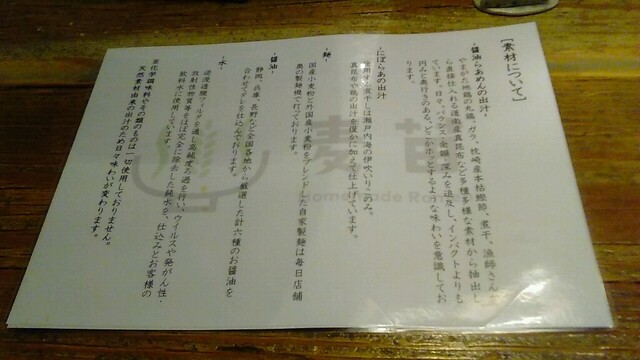 ［素材について］
・醤油らあめんの出汁・
やまがた地鶏の丸鶏、ガラ、枕崎産本枯鰹節、煮干、漁師さんか
ら直接仕入れる道南産真昆布など多種多様な素材から抽出し
ています。日々、バランス、余韻、深みを追及し、インパクトよりも
円みと奥行きのある、どこかホッとするような味わいを意識してお
ります。
・にぼらあの出汁・
使用する煮干しは瀬戸内海の伊吹いりこのみ。
真昆布や鶏の出汁を僅かに加えて仕上げています。
・麺・
国産小麦粉と外国産小麦粉をブレンドした自家製麺は毎日店舗
奥の製麺機で打っております。
・醤油・
静岡、兵庫、長野など全国各地から厳選した計六種のお醤油を
合わせてタレを仕込んでおります。
・水・
逆浸透膜フィルタを通し高精度ろ過を行い、ウイルスや発がん性・
放射性物質等をほぼ完全に除去した純水を、仕込みとお客様の
飲料水に使用しています。
※化学調味料やその類のものは一切使用しておりません。
天然素材由来の出汁のため日々味わいが変わります。
麦苗
Homemade Ram